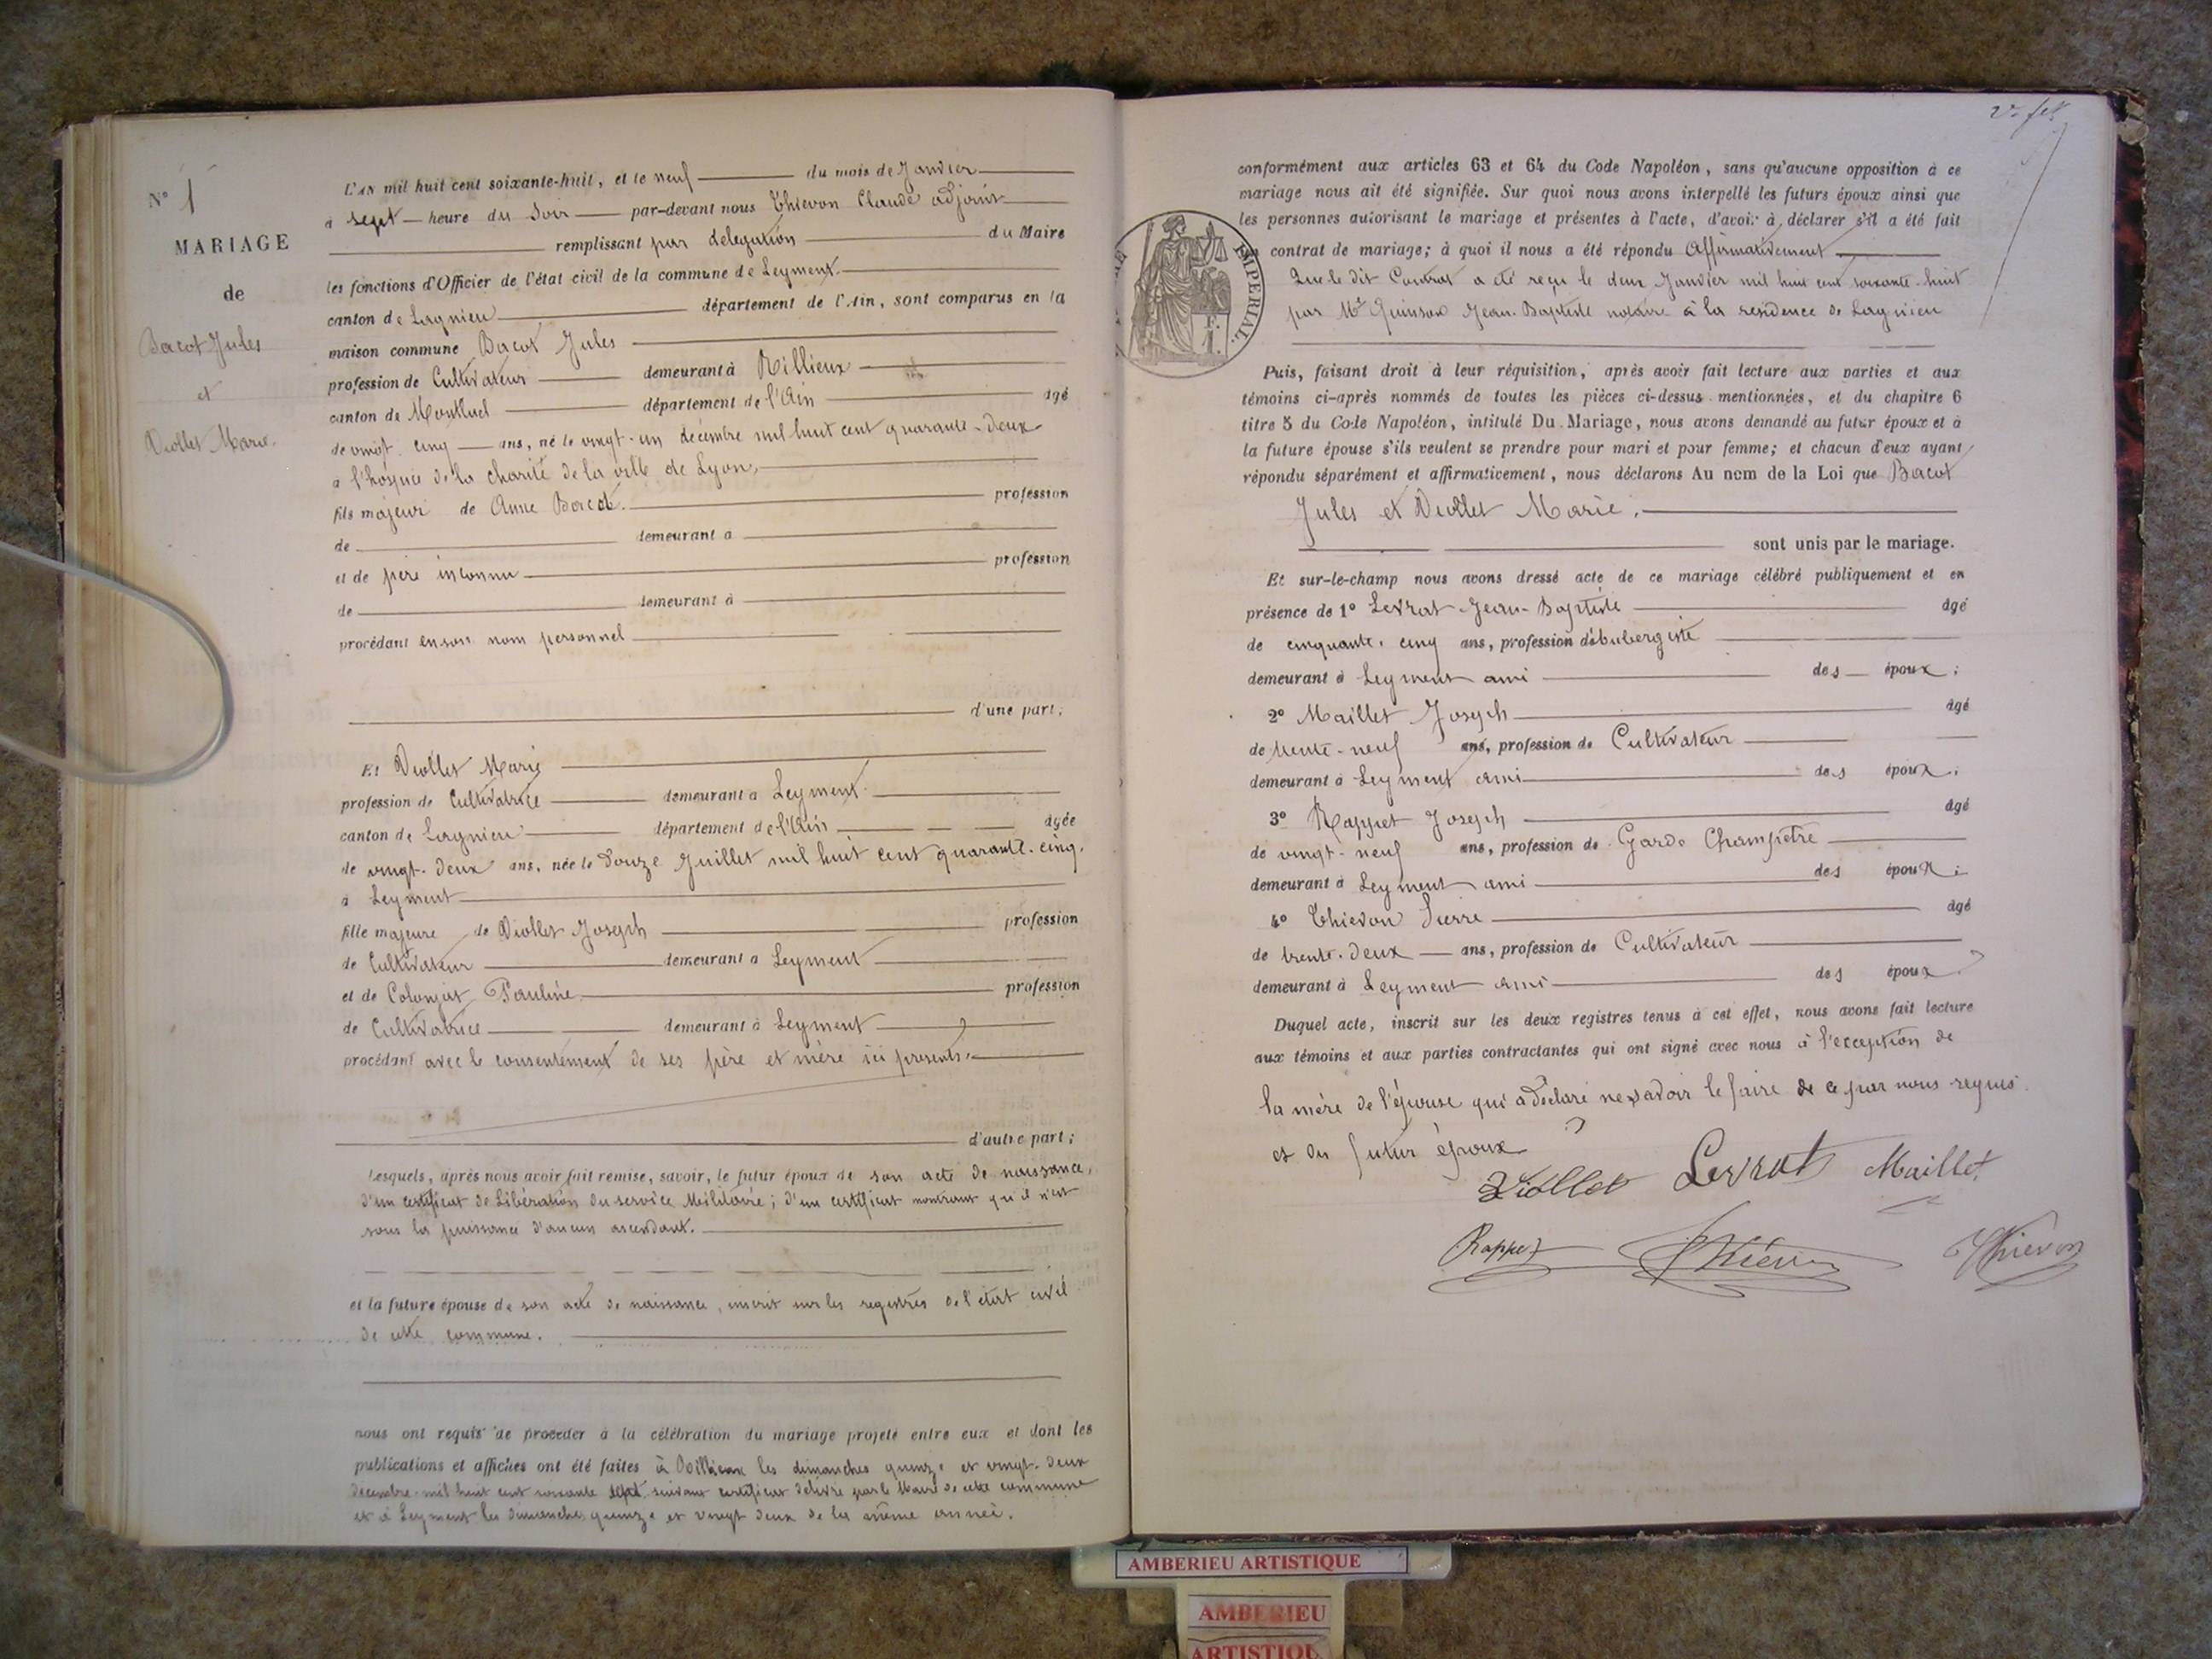 N° 1
MARIAGE
de
Bacot Jules
et
Viollet Marie.
L'AN mil huit cent soixante-huit, et le neuf du mois de Janvier
à sept heure du Soir par-devant nous Thievon Claude adjoint
remplissant par délégation du Maire
les fonctions d'Officier de l'état civil de la commune de Leyment.
canton de Lagnieu département de l'Ain, sont comparus en la
maison commune Bacot Jules
profession de Cultivateur demeurant à Rillieux
canton de Montluel département de l'Ain âgé
de vingt-cinq ans, né le vingt-un décembre mil huit cent quarante-deux
à l'hospice de la charité de la ville de Lyon,
fils majeur de Anne Bacot. profession
de demeurant à
et de père inconnu profession
de demeurant à
procédant en son nom personnel
d'une part;
Et Viollet Marie
profession de Cultivatrice demeurant à Leyment
canton de Lagnieu département de l'Ain âgée
de vingt-deux ans, née le douze Juillet mil huit cent quarante-cinq.
à Leyment
fille majeure de Viollet Joseph profession
de Cultivateur demeurant à Leyment
et de Colonjat Pauline profession
de Cultivatrice demeurant à Leyment
procédant avec le consentement de ses père et mère ici présents.
d'autre part;
Lesquels, après nous avoir fait remise, savoir, le futur époux de son acte de naissance,
d'un certificat de Libération du service Militaire; d'un certificat montrant qu'il n'est
sous la puissance d'aucun ascendant.
et la future épouse de son acte de naissance, inscrit sur les registres de l'état civil
de cette commune.
nous ont requis de procéder à la célébration du mariage projeté entre eux et dont les
publications et affiches ont été faites à Rillieux les dimanches quinze et vingt-deux
décembre mil huit cent soixante sept suivant certificat délivré par le Maire de cette commune
et à Leyment les dimanches quinze et vingt deux de la même année.
conformément aux articles 63 et 64 du Code Napoléon, sans qu'aucune opposition à ce
mariage nous ait été signifiée. Sur quoi nous avons interpellé les futurs époux ainsi que
les personnes autorisant le mariage et présentes à l'acte, d'avoir à déclarer s'il a été fait
contrat de mariage; à quoi il nous a été répondu Affirmativement
Que le dit Contrat a été reçu le deux Janvier mil huit cent soixante-huit
par Me Quinson Jean-Baptiste notaire à la résidence de Lagnieu
IMPERIAL.
Puis, faisant droit à leur réquisition, après avoir fait lecture aux parties et aux
témoins ci-après nommés de toutes les pièces ci-dessus mentionnées, et du chapitre 6
titre 5 du Code Napoléon, intitulé Du Mariage, nous avons demandé au futur époux et à
la future épouse s'ils veulent se prendre pour mari et pour femme; et chacun d'eux ayant
répondu séparément et affirmativement, nous déclarons Au nom de la Loi que Bacot
Jules et Viollet Marie.
sont unis par le mariage.
Et sur-le-champ nous avons dressé acte de ce mariage célébré publiquement et en
présence de 1° Levrat Jean-Baptiste âgé
de cinquante-cinq ans, profession d'aubergiste
demeurant à Leyment ami des époux;
2° Maillet Joseph âgé
de trente-neuf ans, profession de Cultivateur
demeurant à Leyment ami des époux;
3° Rappet Joseph âgé
de vingt-neuf ans, profession de Garde Champêtre
demeurant à Leyment ami des époux;
4° Thievon Pierre âgé
de trente-deux ans, profession de Cultivateur
demeurant à Leyment ami des époux
Duquel acte, inscrit sur les deux registres tenus à cet effet, nous avons fait lecture
aux témoins et aux parties contractantes qui ont signé avec nous à l'exception de
la mère de l'épouse qui a déclaré ne savoir le faire de ce par nous requis
et du futur époux
Viollet Levrat Maillet
Rappet Thiévon Thievon
AMBERIEU ARTISTIQUE
AMBERIEU
ARTISTIQU